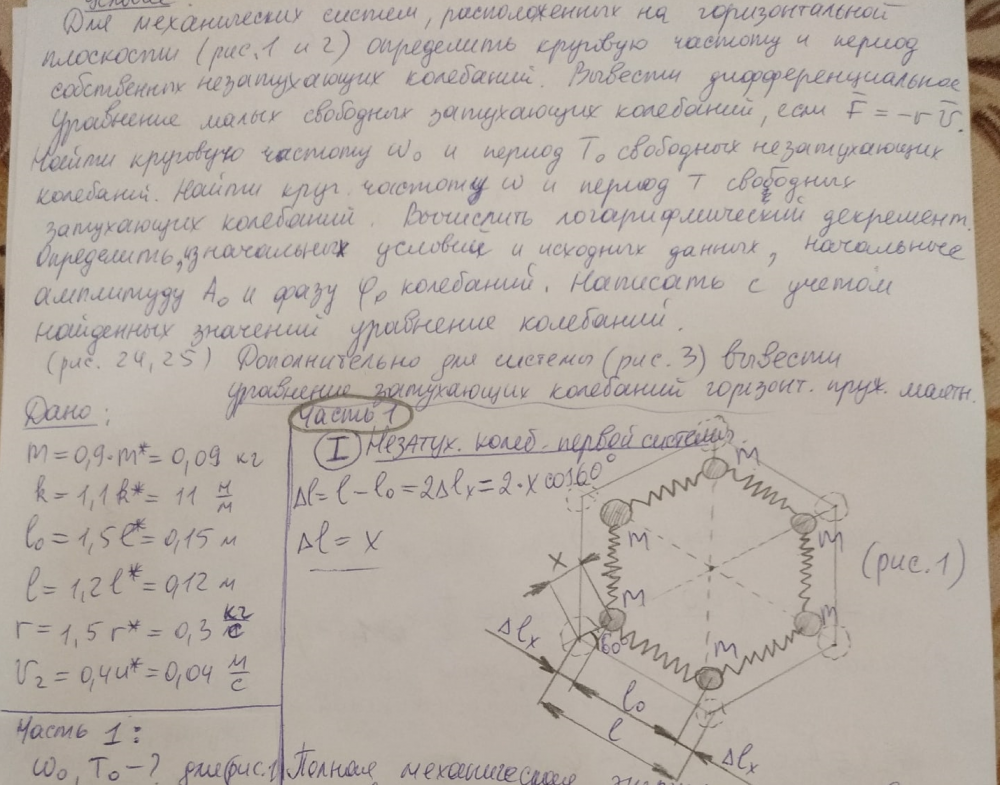 Для механических систем, расположенных на горизонтальной
плоскости (рис. 1 и 2) определить круговую частоту и период
собственных незатухающих колебаний. Вывести дифференциальное
уравнение малых свободных затухающих колебаний, если F̄ = -r V̄.
Найти круговую частоту ω₀ и период T₀ свободных незатухающих
колебаний. Найти круг. частоту ω и период T свободных
затухающих колебаний. Вычислить логарифмический декремент.
Определить, из начальных условий и исходных данных, начальные
амплитуду A₀ и фазу φ₀ колебаний. Написать с учетом
найденных значений уравнение колебаний.
(рис. 24, 25) Дополнительно для системы (рис. 3) вывести
уравнение затухающих колебаний горизонт. пруж. маятн.
Дано:
m = 0,9·m* = 0,09 кг
k = 1,1k* = 11 Н/м
l₀ = 1,5l* = 0,15 м
l = 1,2l* = 0,12 м
r = 1,5r* = 0,3 кг/с
V₂ = 0,4u* = 0,04 м/с
Часть 1:
ω₀, T₀ - ? для (рис. 1
Часть 1
I Незатух. колеб. первой системы.
Δl = l - l₀ = 2Δlₓ = 2·x cos60°
Δl = x
m
m
m
m
m
m
x
60°
Δlₓ
l₀
l
Δlₓ
(рис. 1)
Полная механическая